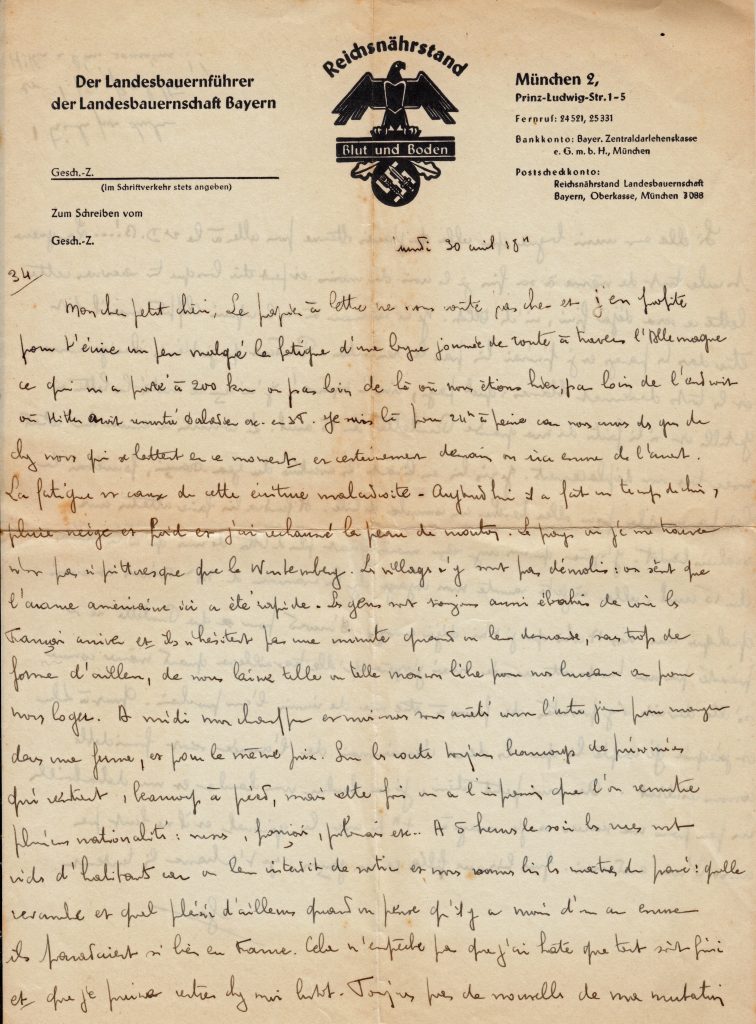 Der Landesbauernführer
der Landesbauernschaft Bayern
Gesch.-Z.
(Im Schriftverkehr stets angeben)
Zum Schreiben vom
Gesch.-Z.
Reichsnährstand
Blut und Boden
München 2,
Prinz-Ludwig-Str. 1-5
Fernruf: 24521, 25331
Bankkonto: Bayer. Zentraldarlehenskasse
e. G. m. b. H., München
Postscheckkonto:
Reichsnährstand Landesbauernschaft
Bayern, Oberkasse, München 7088
Lundi 30 avril 18h
34/
Mon cher petit chéri, Le papier à lettre ne nous coûte pas cher et j'en profite
pour t'écrire un peu malgré la fatigue d'une longue journée de route à travers l'Allemagne
ce qui m'a porté à 200 km ou pas loin de là où nous étions hier, pas loin de l'endroit
où Hitler avait rencontré Daladier en 38. Je suis là pour 24h à peine car nous avons des gens de
chez nous qui se battent en ce moment et certainement demain on ira encore de l'avant.
La fatigue est cause de cette écriture maladroite - Aujourd'hui il a fait un temps de chien,
pluie neige et froid et j'ai rechaussé la peau de mouton. Le pays où je me trouve
n'est pas si pittoresque que le Wurtemberg. Les villages n'y sont pas démolis : on sent que
l'avance américaine ici a été rapide. Les gens sont toujours aussi ébahis de voir les
Français arriver et ils n'hésitent pas une minute quand on leur demande, sans trop de
forme d'ailleurs, de nous laisser telle ou telle maison libre pour nos bureaux ou pour
nous loger. A midi mon chauffeur et moi-même nous sommes arrêtés comme l'autre jour pour manger
dans une ferme, et pour le même prix. Sur les routes toujours beaucoup de prisonniers
qui rentrent, beaucoup à pied, mais cette fois on a l'impression que l'on rencontre
plusieurs nationalités : russes, français, polonais etc.. A 5 heures le soir les rues sont
vides d'habitants car on leur interdit de sortir et nous sommes les maîtres du pavé : quelle
revanche et quel plaisir d'ailleurs quand on pense qu'il y a moins d'un an encore
ils paradaient si bien en France. Cela n'empêche pas que j'ai hâte que tout soit fini
et que je puisse rentrer chez moi bientôt. Toujours pas de nouvelle de ma mutation